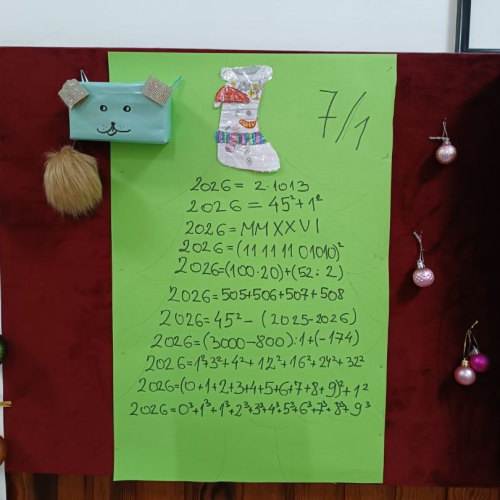 7/1
2026 = 2·1013
2026 = 45² + 1²
2026 = MMXXVI
2026 = (11111101010)²
2026=(100·20)+(52:2)
2026=505+506+507+508
2026=45² - (2025-2026)
2026=(3000-800):1+(-174)
2026=1²+3²+4²+12²+16²+24²+32²
2026=(0+1+2+3+4+5+6+7+8+9)²+1²
2026=0³+1³+1³+2³+3³+4³+5³+6³+7³+8³+9³